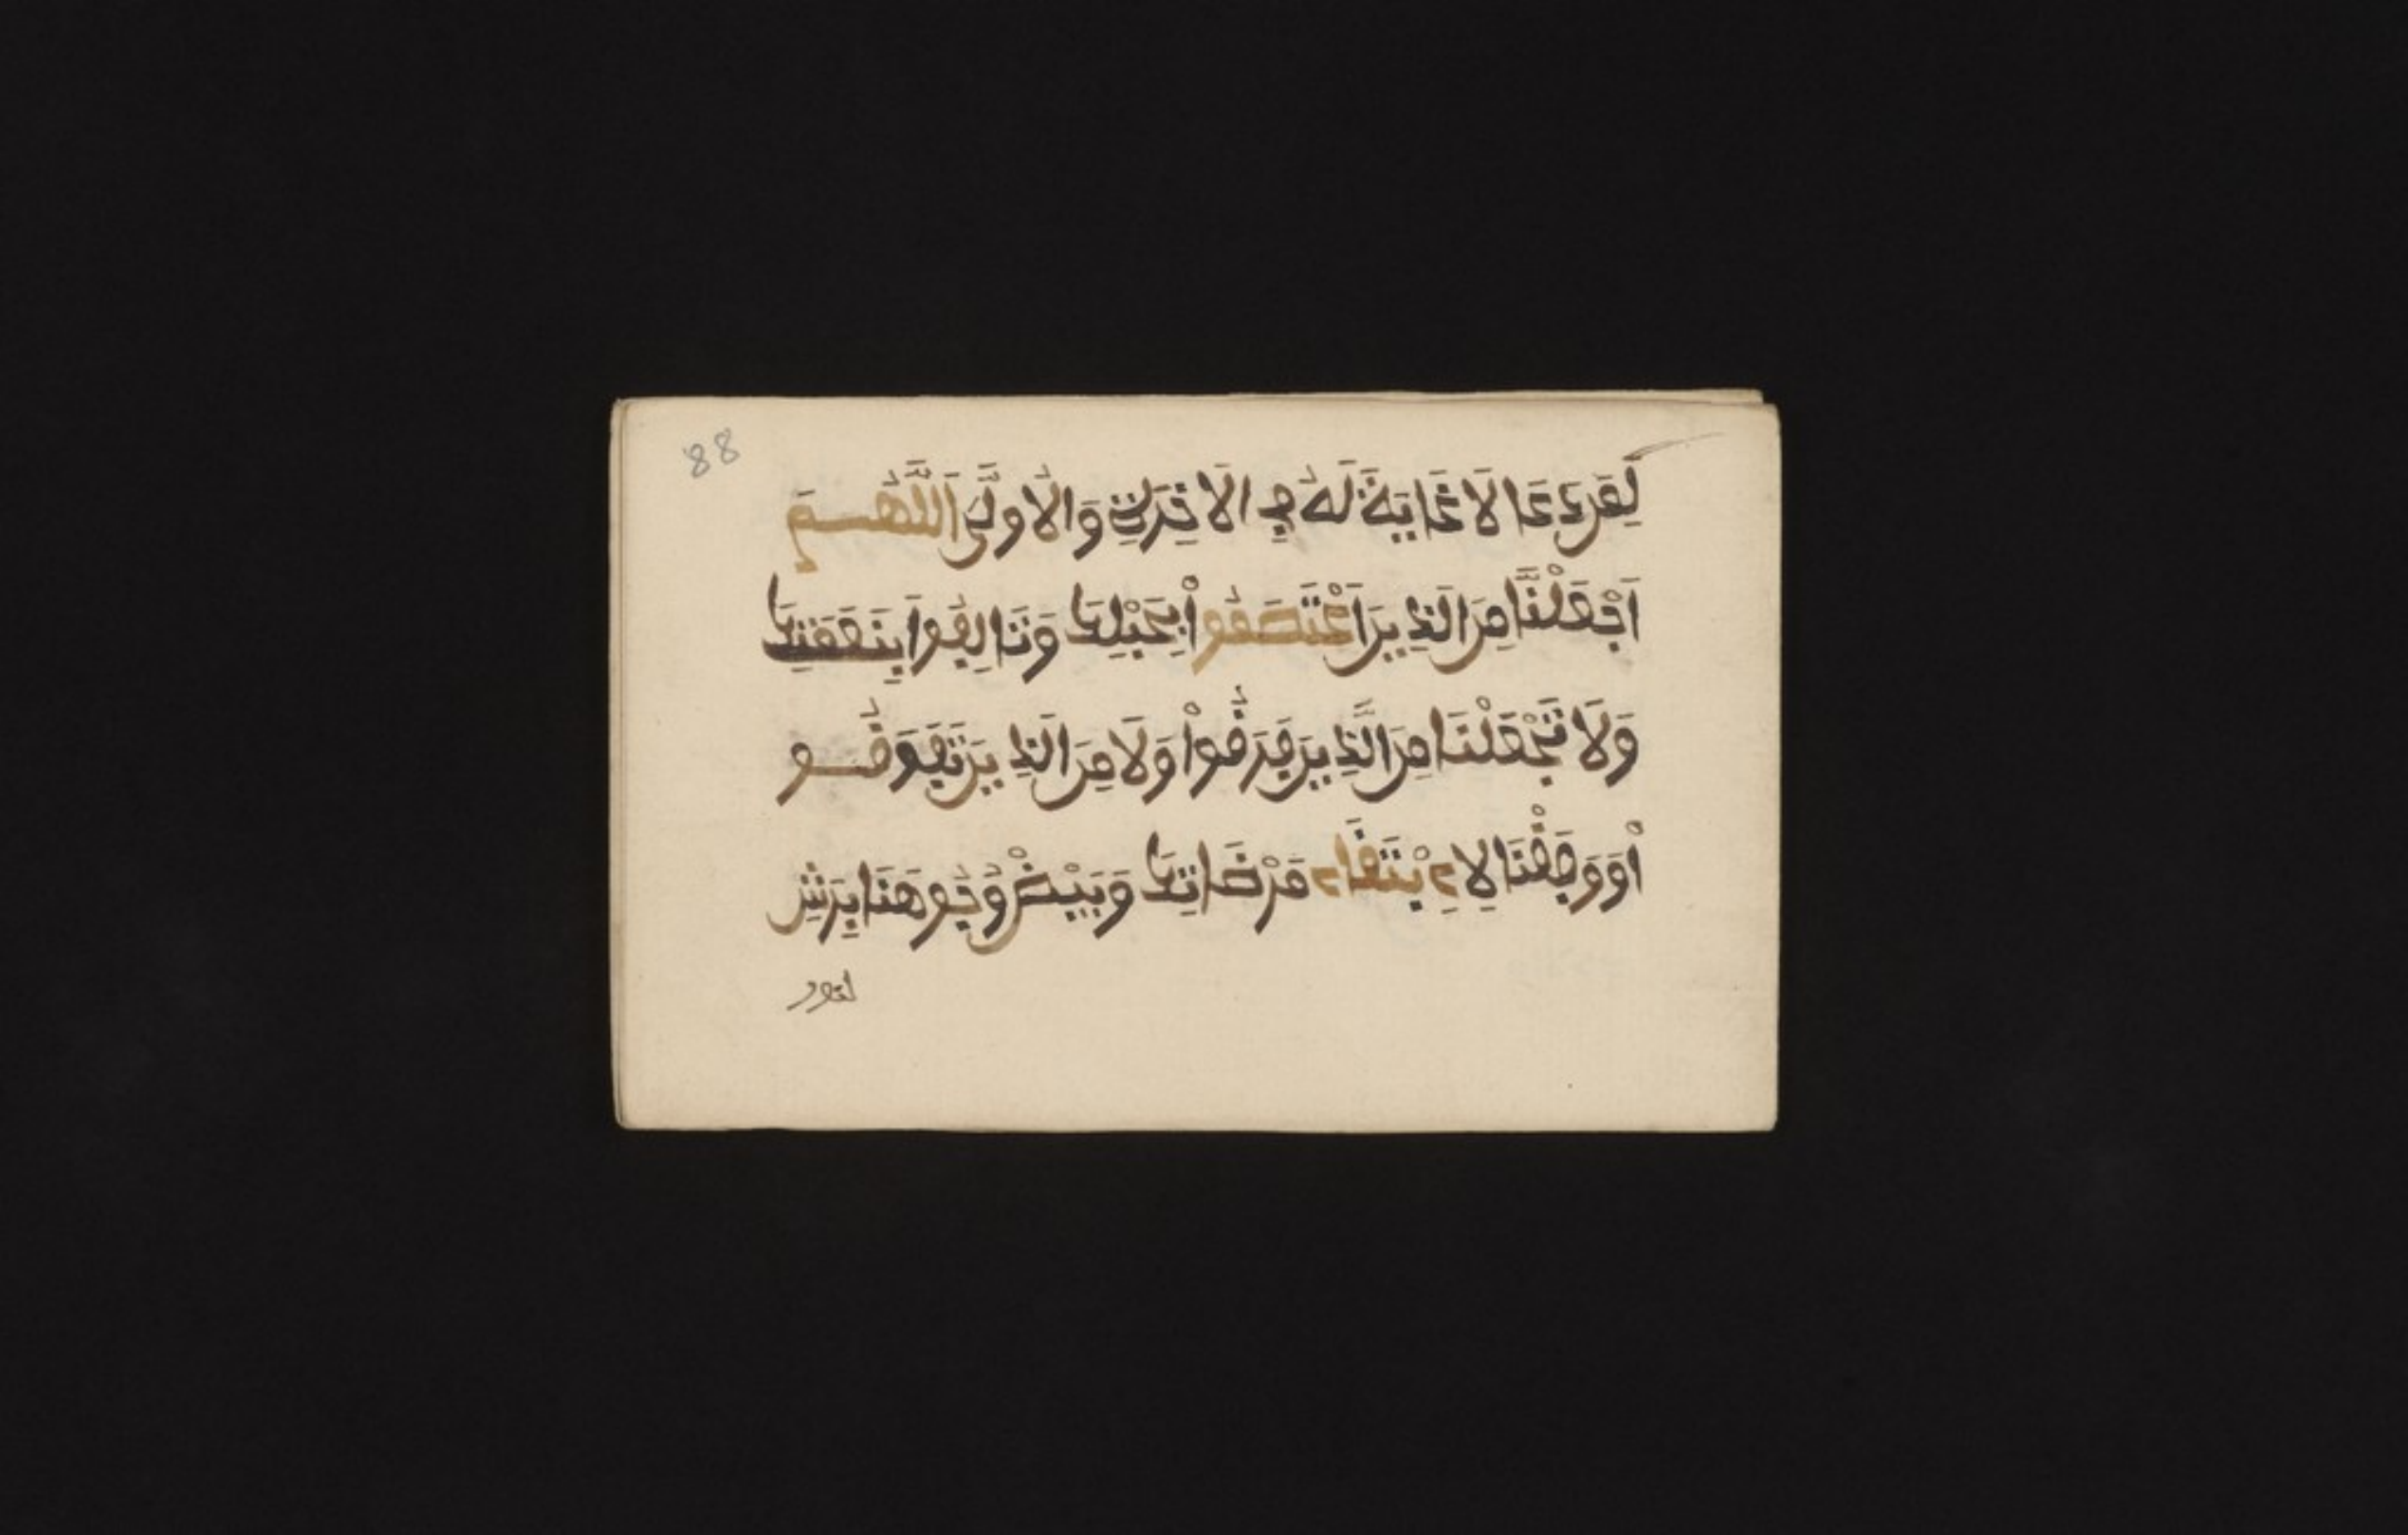 لَا غَايَةَ لَهُ فِي الَاخِرَةِ وَالُاولَى اَللَّهُمَّ
اَجْعَلْنَا مِنَ الَذِينَ اَعْتَصَمُو اْ بِحَبْلِكَ بِنِعْمَتِكَ
وَلَا تَجْعَلْنَا مِنَ الَّذِينَ فَرَقُواْ وَلَا مِنَ الَذِينَ تَفَرَقُو
اْ وَوَفِقْنَا لِابْتِغَاءِ مَرْضَاتِكَ وَبَيِضْ وُجُوهَنَا
88